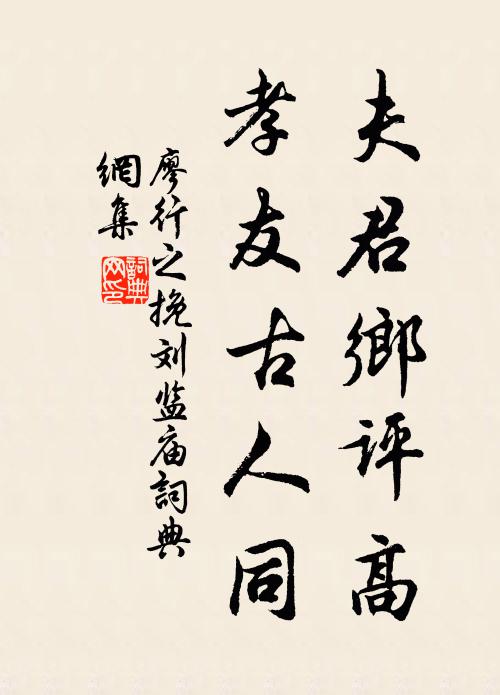 夫君鄉評高
孝友古人同
廖行之挽刘监庙詞典
網集
詞典網印